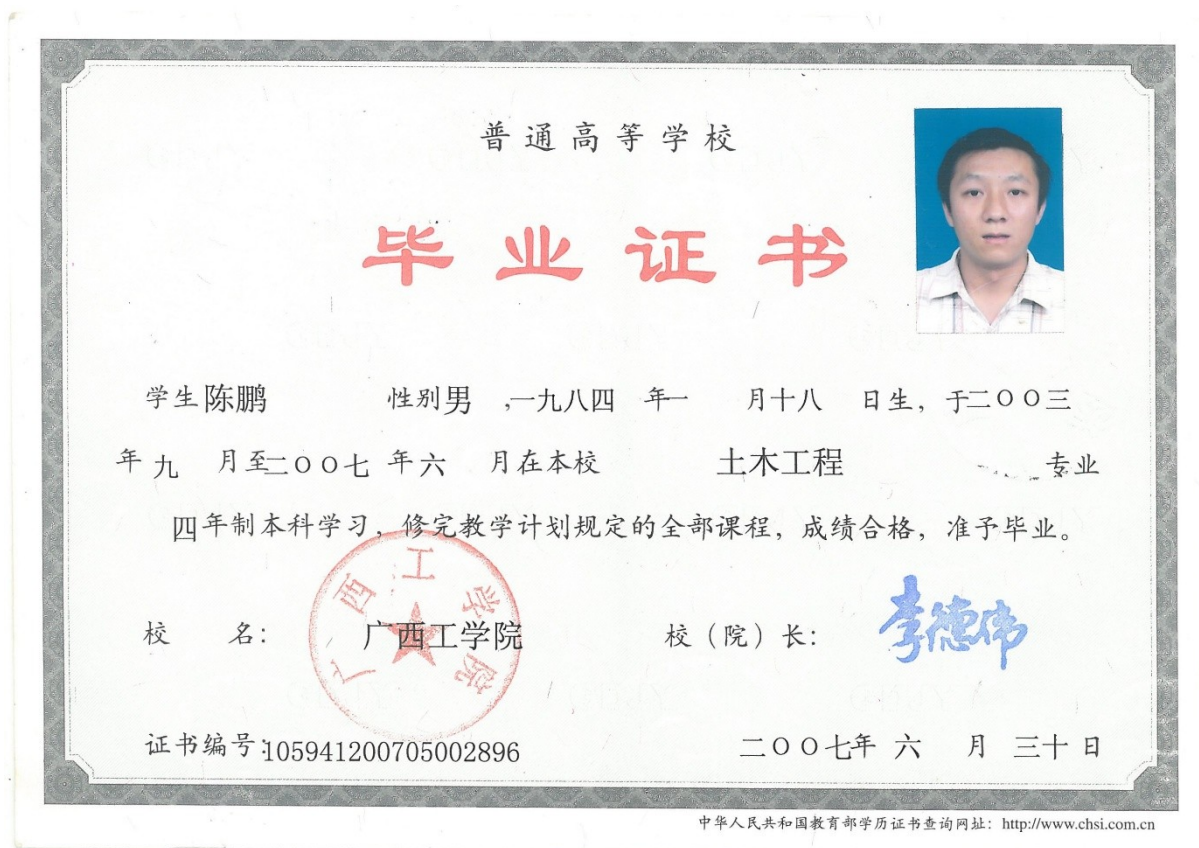 普通高等学校
毕业证书
学生 陈鹏 性别 男 ,一九八四 年 一 月 十八 日生, 于 二〇〇三
年 九 月至 二〇〇七 年 六 月在本校 土木工程 专业
四年制本科学习, 修完教学计划规定的全部课程, 成绩合格, 准予毕业。
广西工学院
校 名: 广西工学院 校(院)长: 李德伟
证书编号:105941200705002896 二〇〇七年 六 月 三十 日
中华人民共和国教育部学历证书查询网址: http://www.chsi.com.cn